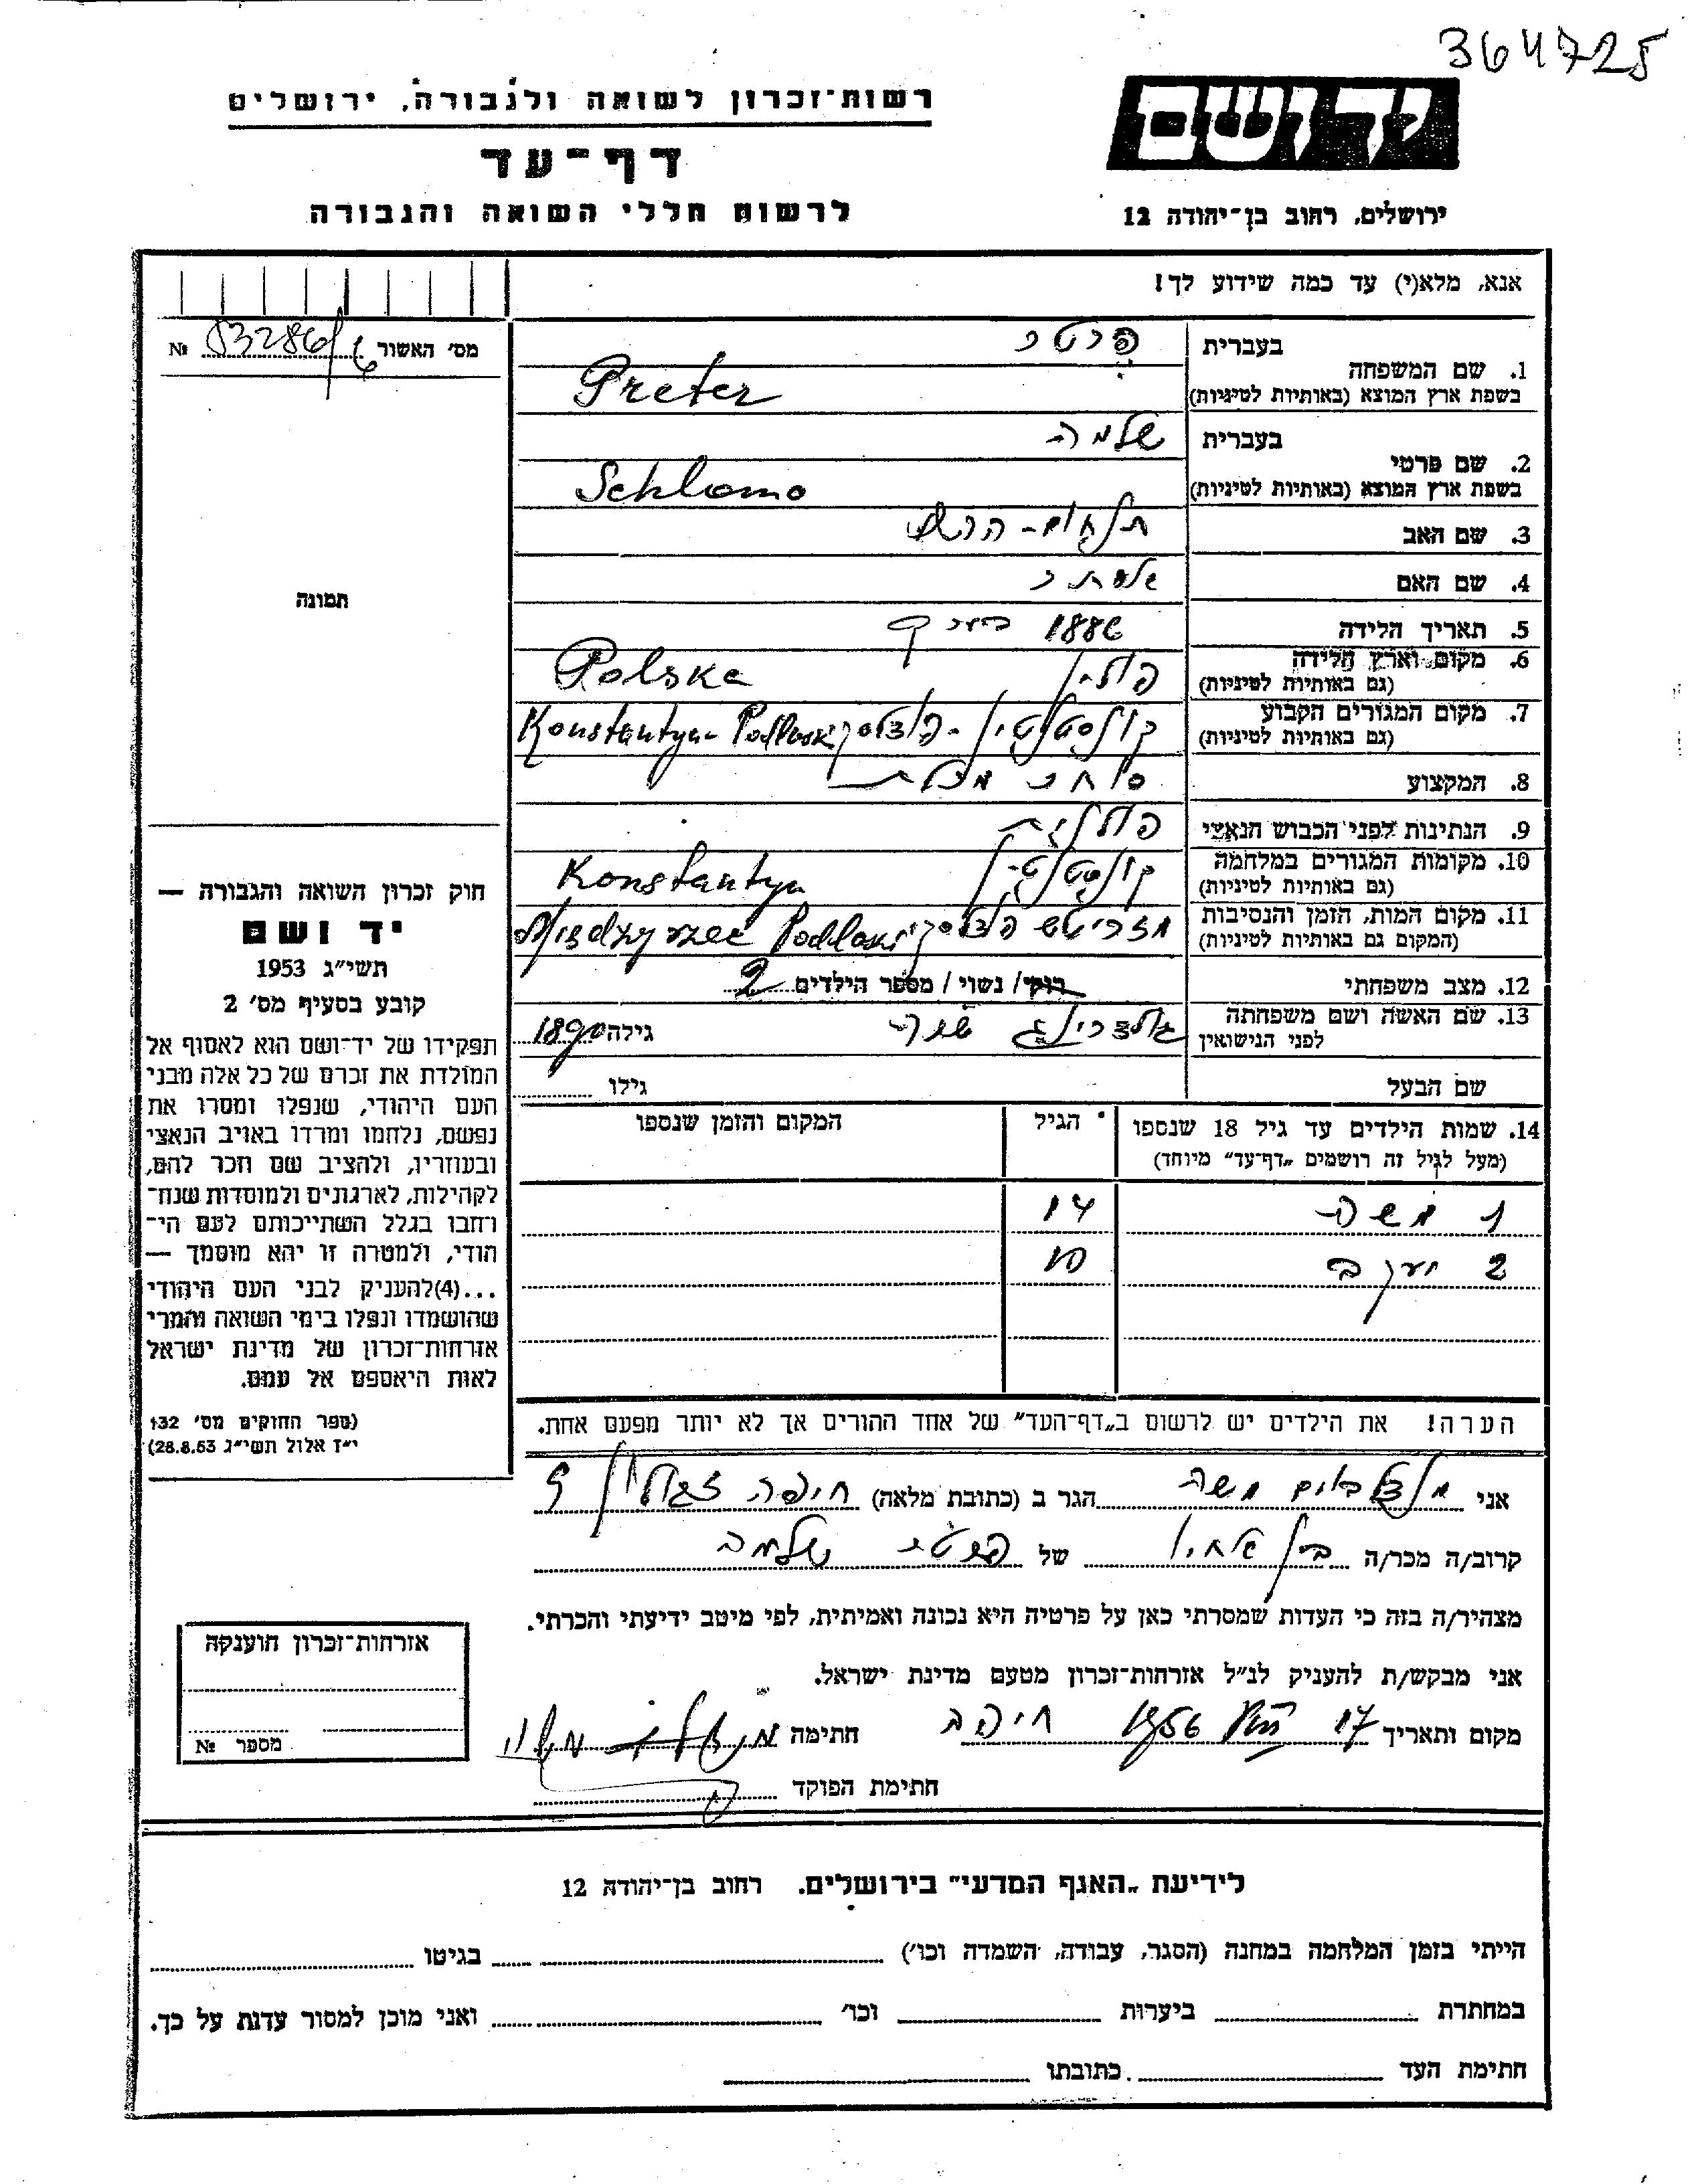 364725
רשות־זכרון לשואה ולגבורה, ירושלים
יד ושם
דף־עד
לרשום חללי השואה והגבורה
ירושלים, רחוב בן־יהודה 12
אנא, מלא(י) עד כמה שידוע לך!
מס' האשור № 83286/6
1. שם המשפחה
בעברית פרטר
בשפת ארץ המוצא (באותיות לטיניות) Preter
2. שם פרטי
בעברית שלמה
בשפת ארץ המוצא (באותיות לטיניות) Schlomo
3. שם האב
4. שם האם אסתר
5. תאריך הלידה 1886 בערך
6. מקום וארץ הלידה (גם באותיות לטיניות) פולין Polska
7. מקום המגורים הקבוע (גם באותיות לטיניות) קונסטנטין-פודלסקי Konstantyn- Podlaski
8. המקצוע סוחר
9. הנתינות לפני הכבוש הנאצי פולנית
10. מקומות המגורים במלחמה (גם באותיות לטיניות) קונסטנטין Konstantyn
11. מקום המות, הזמן והנסיבות (המקום גם באותיות לטיניות) מזריטש פודלסקי Miedzyrzec Podlaski
12. מצב משפחתי רוק/ נשוי / מספר הילדים 2
13. שם האשה ושם משפחתה לפני הנישואין גולדברג שרה גילה 1890
שם הבעל גילו
14. שמות הילדים עד גיל 18 שנספו הגיל המקום והזמן שנספו
(מעל לגיל זה רושמים „דף־עד" מיוחד)
1 משה 14
2 יעקב 10
הערה! את הילדים יש לרשום ב„דף־העד" של אחד ההורים אך לא יותר מפעם אחת.
תמונה
חוק זכרון השואה והגבורה —
יד ושם
תשי״ג 1953
קובע בסעיף מס' 2
תפקידו של יד־ושם הוא לאסוף אל
המולדת את זכרם של כל אלה מבני
העם היהודי, שנפלו ומסרו את
נפשם, נלחמו ומרדו באויב הנאצי
ובעוזריו, ולהציב שם וזכר להם,
לקהילות, לארגונים ולמוסדות שנח־
רחבו בגלל השתייכותם לעם הי־
הודי, ולמטרה זו יהא מוסמך —
...(4)להעניק לבני העם היהודי
שהושמדו ונפלו בימי השואה והמרי
אזרחות־זכרון של מדינת ישראל
לאות היאספם אל עמם.
(ספר החוקים מס' 132
י״ז אלול תשי״ג 28.8.53)
אני מנדלבוים משה הגר ב (כתובת מלאה) חיפה 9
קרוב/ה מכר/ה בן אחין של פרטר שלמה
מצהיר/ה בזה כי העדות שמסרתי כאן על פרטיה היא נכונה ואמיתית, לפי מיטב ידיעתי והכרתי.
אני מבקש/ת להעניק לנ״ל אזרחות־זכרון מטעם מדינת ישראל.
מקום ותאריך 17 1956 חיפה חתימה
חתימת הפוקד
אזרחות־זכרון הוענקה
מספר №
לידיעת „האגף המדעי" בירושלים. רחוב בן־יהודה 12
הייתי בזמן המלחמה במחנה (הסגר, עבודה, השמדה וכו') בגיטו
במחתרת ביערות וכו' ואני מוכן למסור עדות על כך.
חתימת העד כתובתו